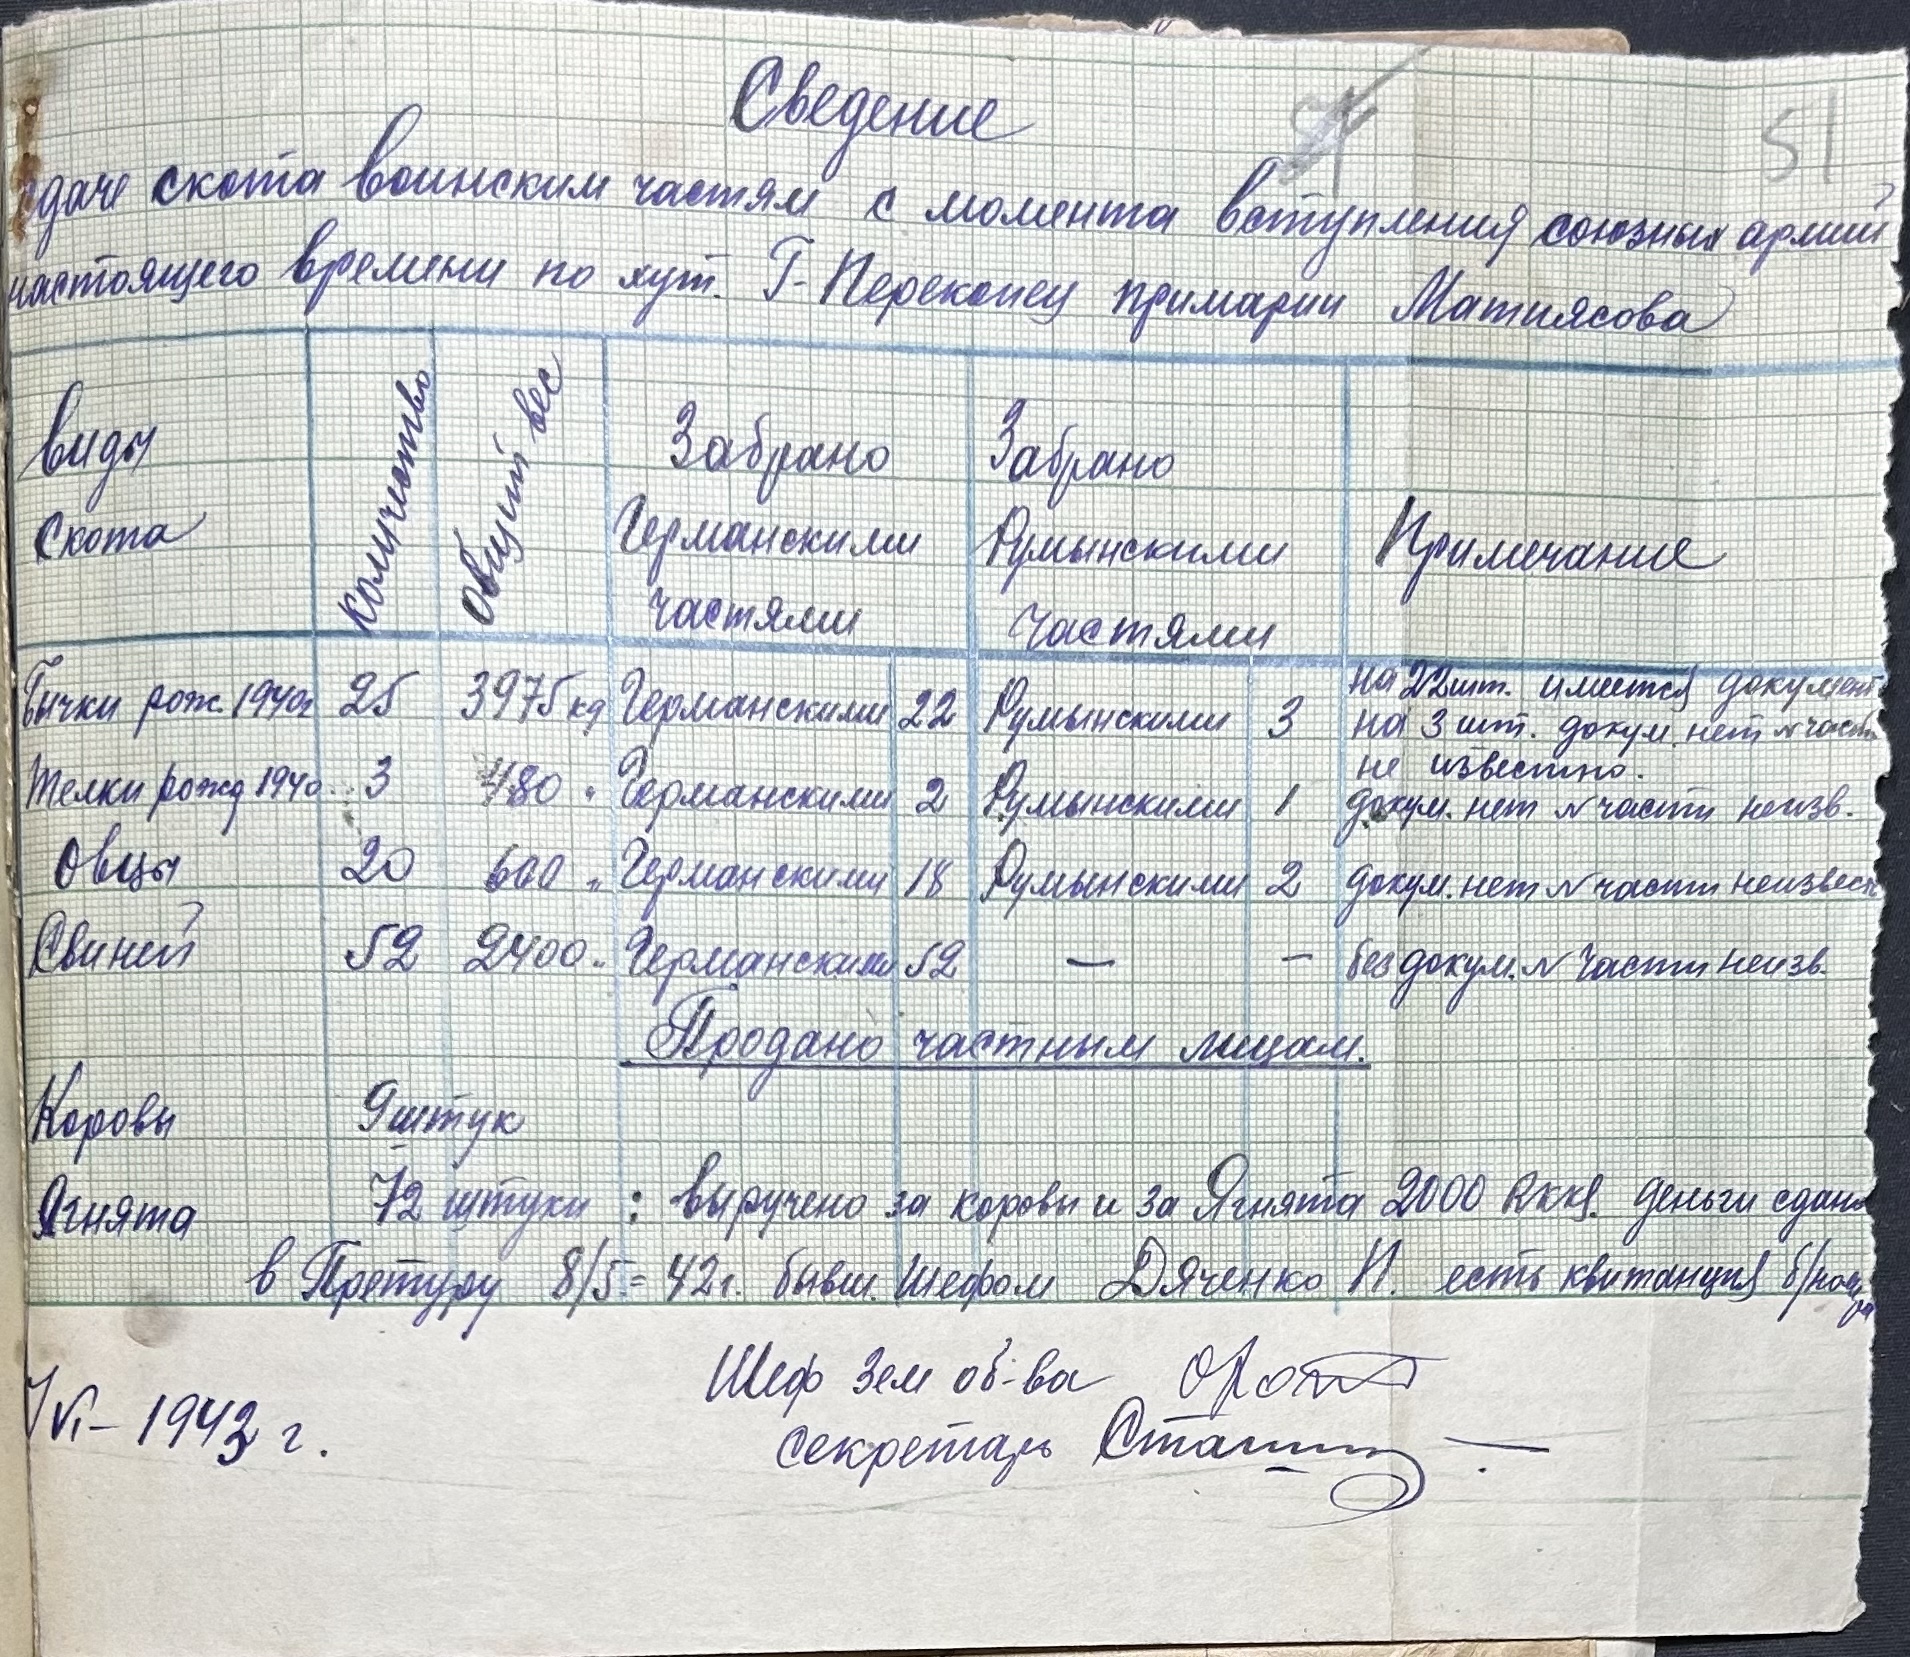 Сведение
51
сдаче скота воинским частям с момента вступления союзных армий
настоящего времени по хут. Г-Перекопец примарии Матиясова
Виды скота
количество
общий вес
Забрано Германскими частями
Забрано Румынскими частями
Примечание
Бычки рож. 1940г 25 3975 кг Германскими 22 Румынскими 3 на 22 шт. имеется документ
на 3 шт. докум. нет № част
не известно.
Телки рожд 1940 3 480 " Германскими 2 Румынскими 1 докум. нет № части неизв.
Овцы 20 600 " Германскими 18 Румынскими 2 докум. нет № части неизвест
Свиней 52 2400 " Германскими 52 — — без докум. № части неизв.
Продано частным лицам.
Коровы 9 штук
Ягнята 72 штуки : выручено за коровы и за Ягнята 2000 RKKS. деньги сданы
в Претуру 8/5 = 42 г. бывш. Шефом Дяченко И. есть квитанция б/номера
Шеф Зем об-ва
7/VI – 1943 г.
секретарь